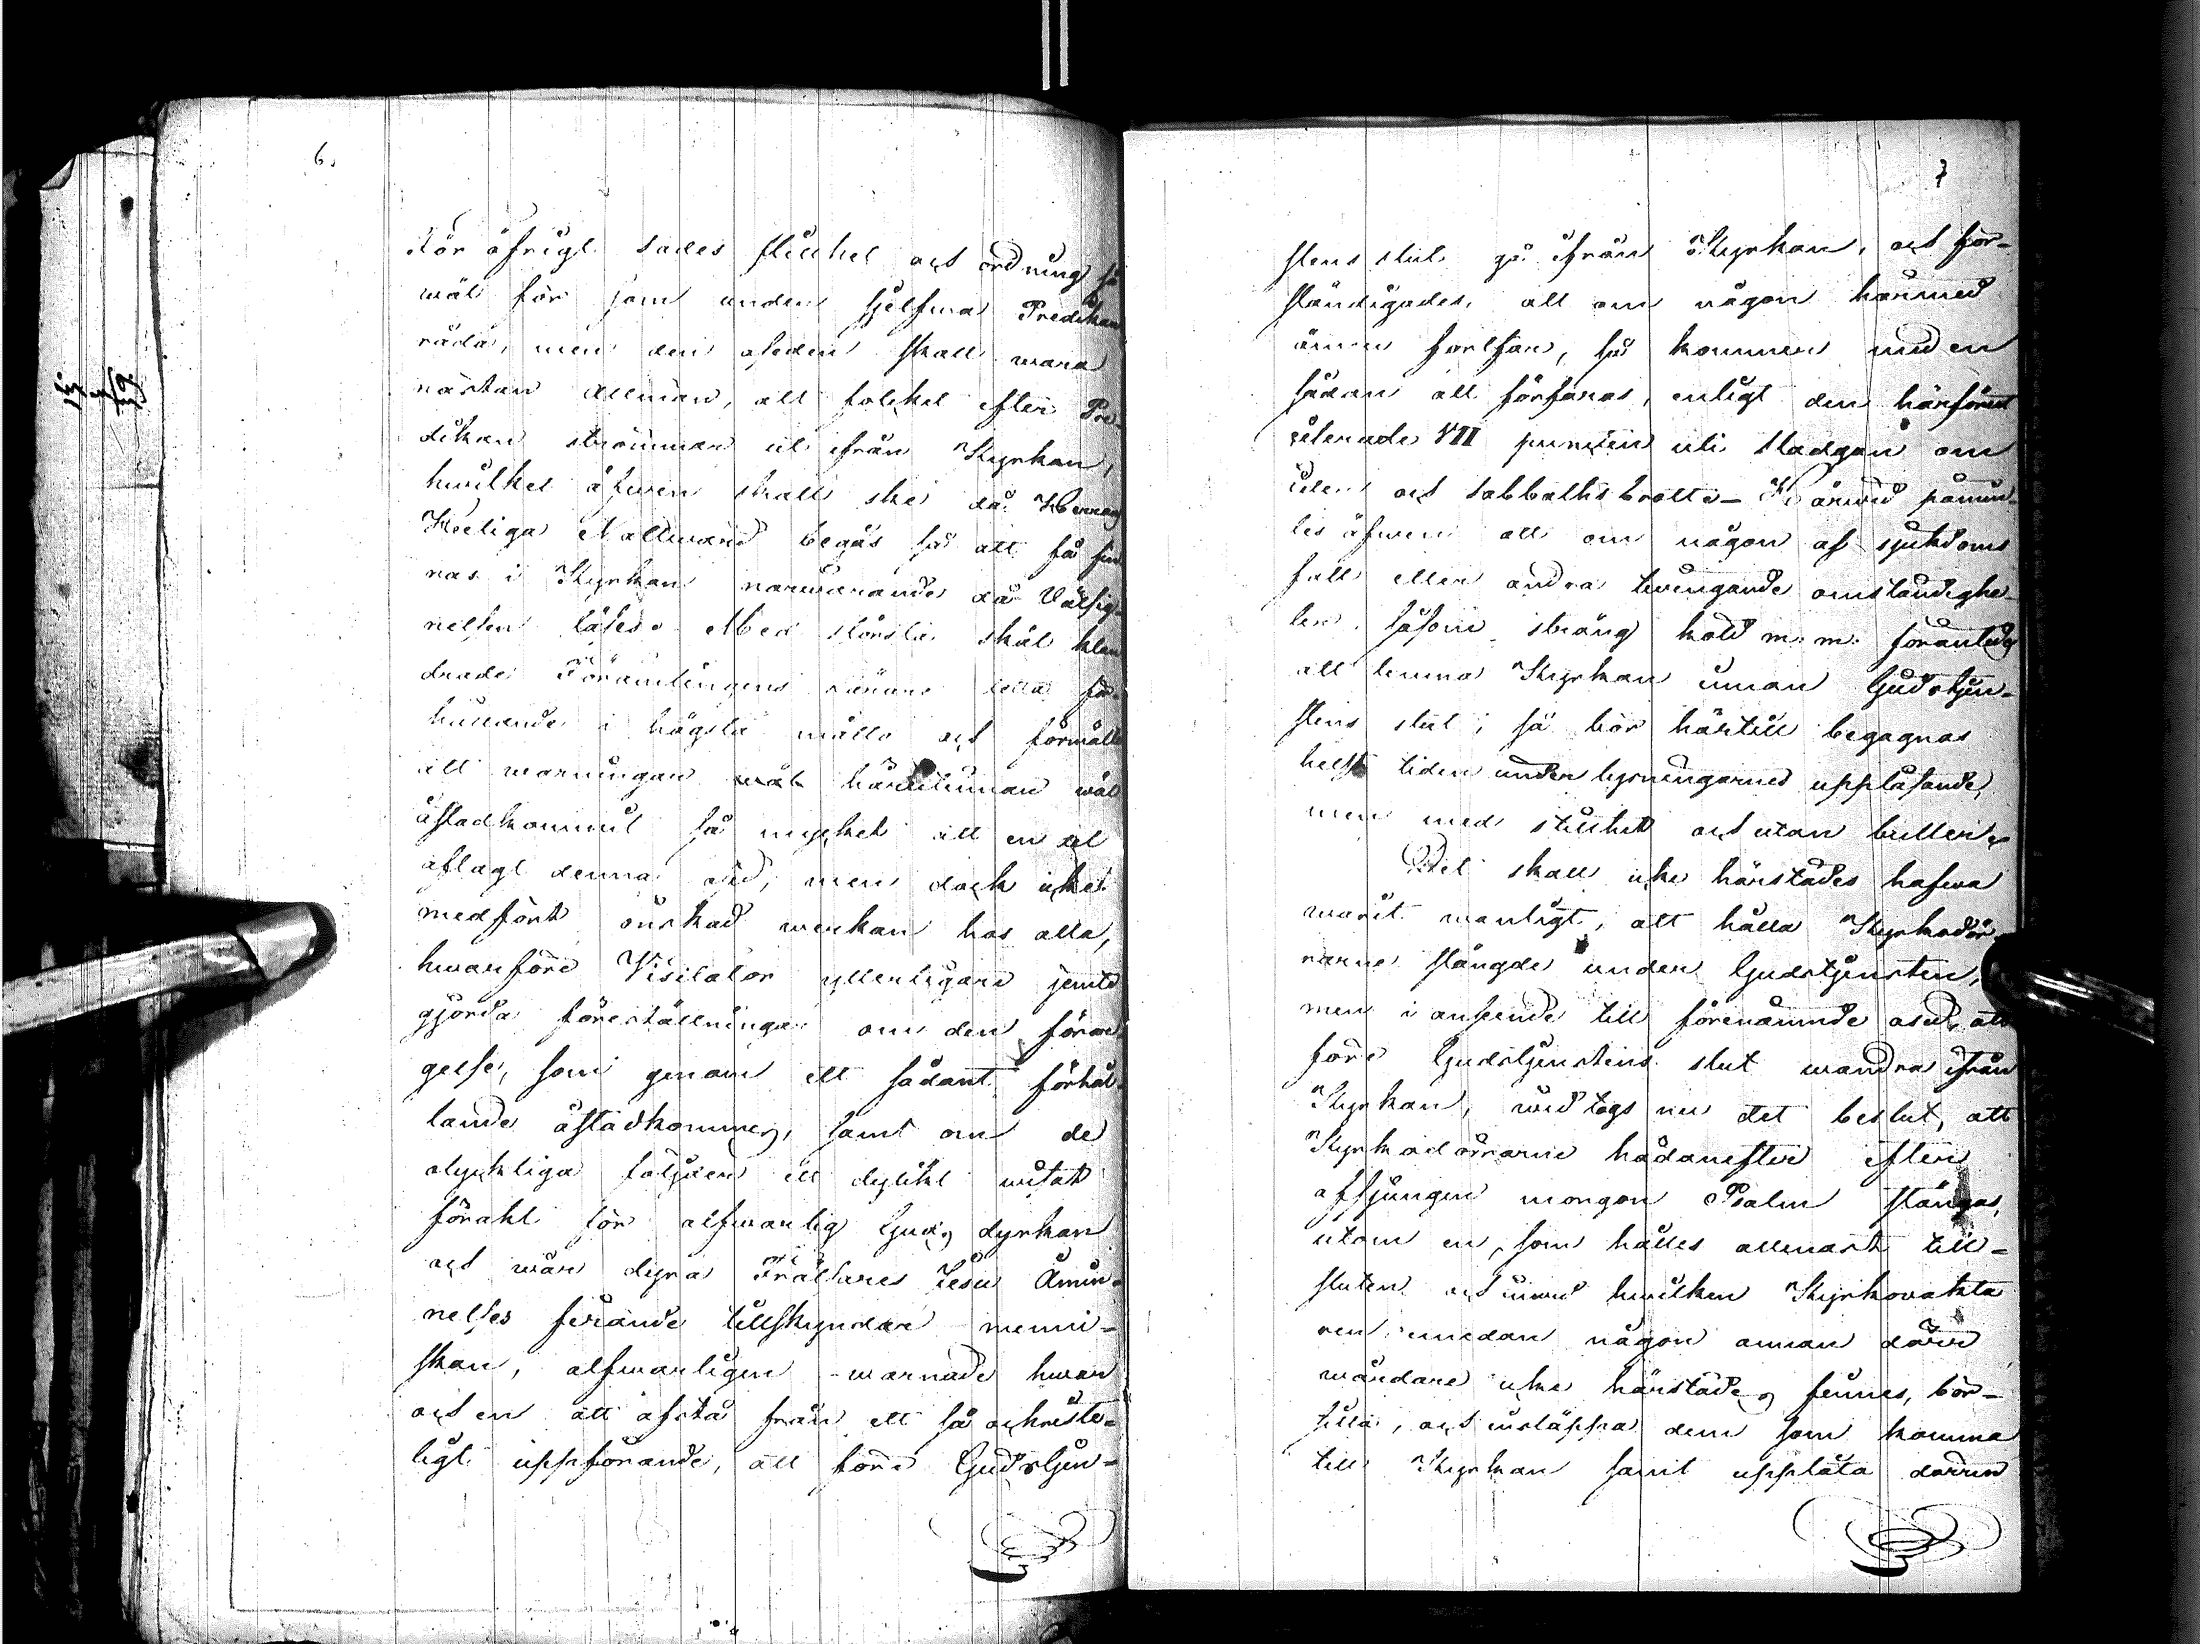 6.
För öfrigt sades stillhet och ordning så
wäl för som under sjelfwa Predikan
råda, men den oseden skall wara
nästan allmän, att folcket efter Pre-
dikan strömmar ut ifrån Kyrkan,
hwilket äfwen skall ske då Herrans
Heeliga Nattward begås så att få fin
nas i Kyrkan narwarande då Välsig-
nelsen läses. Med största skäl klan
drade Församlingens detta för
hållande i högsta måtto och förmälte
att warningar härutinnan wäl
åstadkommit så mycket att en del
aflagt denna osed, men dock icke
medfört önskad werkan hos alla,
hwarföre Visitator ytterligare jemte
gjorda föreställningar om den förar-
gelse, som genom ett sådant förhål-
lande åstadkommes, samt om de
olyckliga följder ett dylikt
förakt för alfwarlig Guds dyrkan
och wår dyra Frälsares Jesu Åmin-
nelses firande tillskyndar menni-
skan, alfwarligen warnade hwar
och en att afstå från ett så ochriste-
ligt uppförande, att före Gudstjen-
7
stens slut gå ifrån Kyrkan, och för-
ständigades, att om någon härmed
ämnar fortfara, så kommer med en
sådan att förfaras, enligt den härförut
citerade VII puncten uti Stadgan om
Eder och Sabbathsbrott – Härwid påmin-
tes äfwen att om någon af sjukdoms
fall eller andra twingande omständighe-
ter, såsom sträng köld m. m. föranledes
att lemna Kyrkan innan Gudstjen-
stens slut, så bör härtill begagnas
helst tiden under lysningarnes uppläsande,
men med stillhet och utan buller.
Det skall icke härstädes hafwa
warit wanligt, att hålla Kyrkodör-
rarne stängde under Gudstjensten,
men i anseende till förenämnde osed, att
före Gudstjenstens slut wandra ifrån
Kyrkan, widtogs nu det beslut, att
Kyrkodörrarne hädanefter efter
afsjungen morgon Psalm stängas,
utom en, som hålles allenast till-
sluten och inwid hwilken Kyrkovakta
ren emedan någon annan dörr
wårdare icke härstädes finnes, bör
sitta, och insläppa dem som komma
till Kyrkan samt upplåta dörren